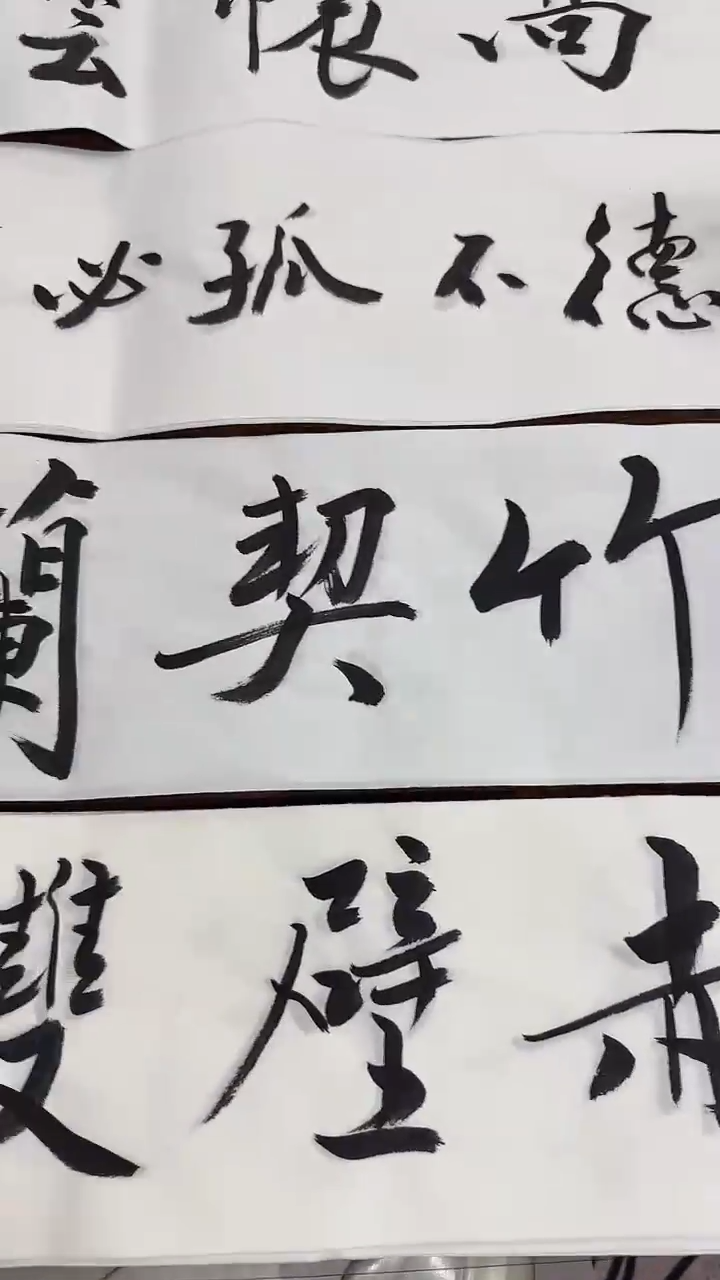 懷雲
德不孤必
竹契蘭
赤壁雙